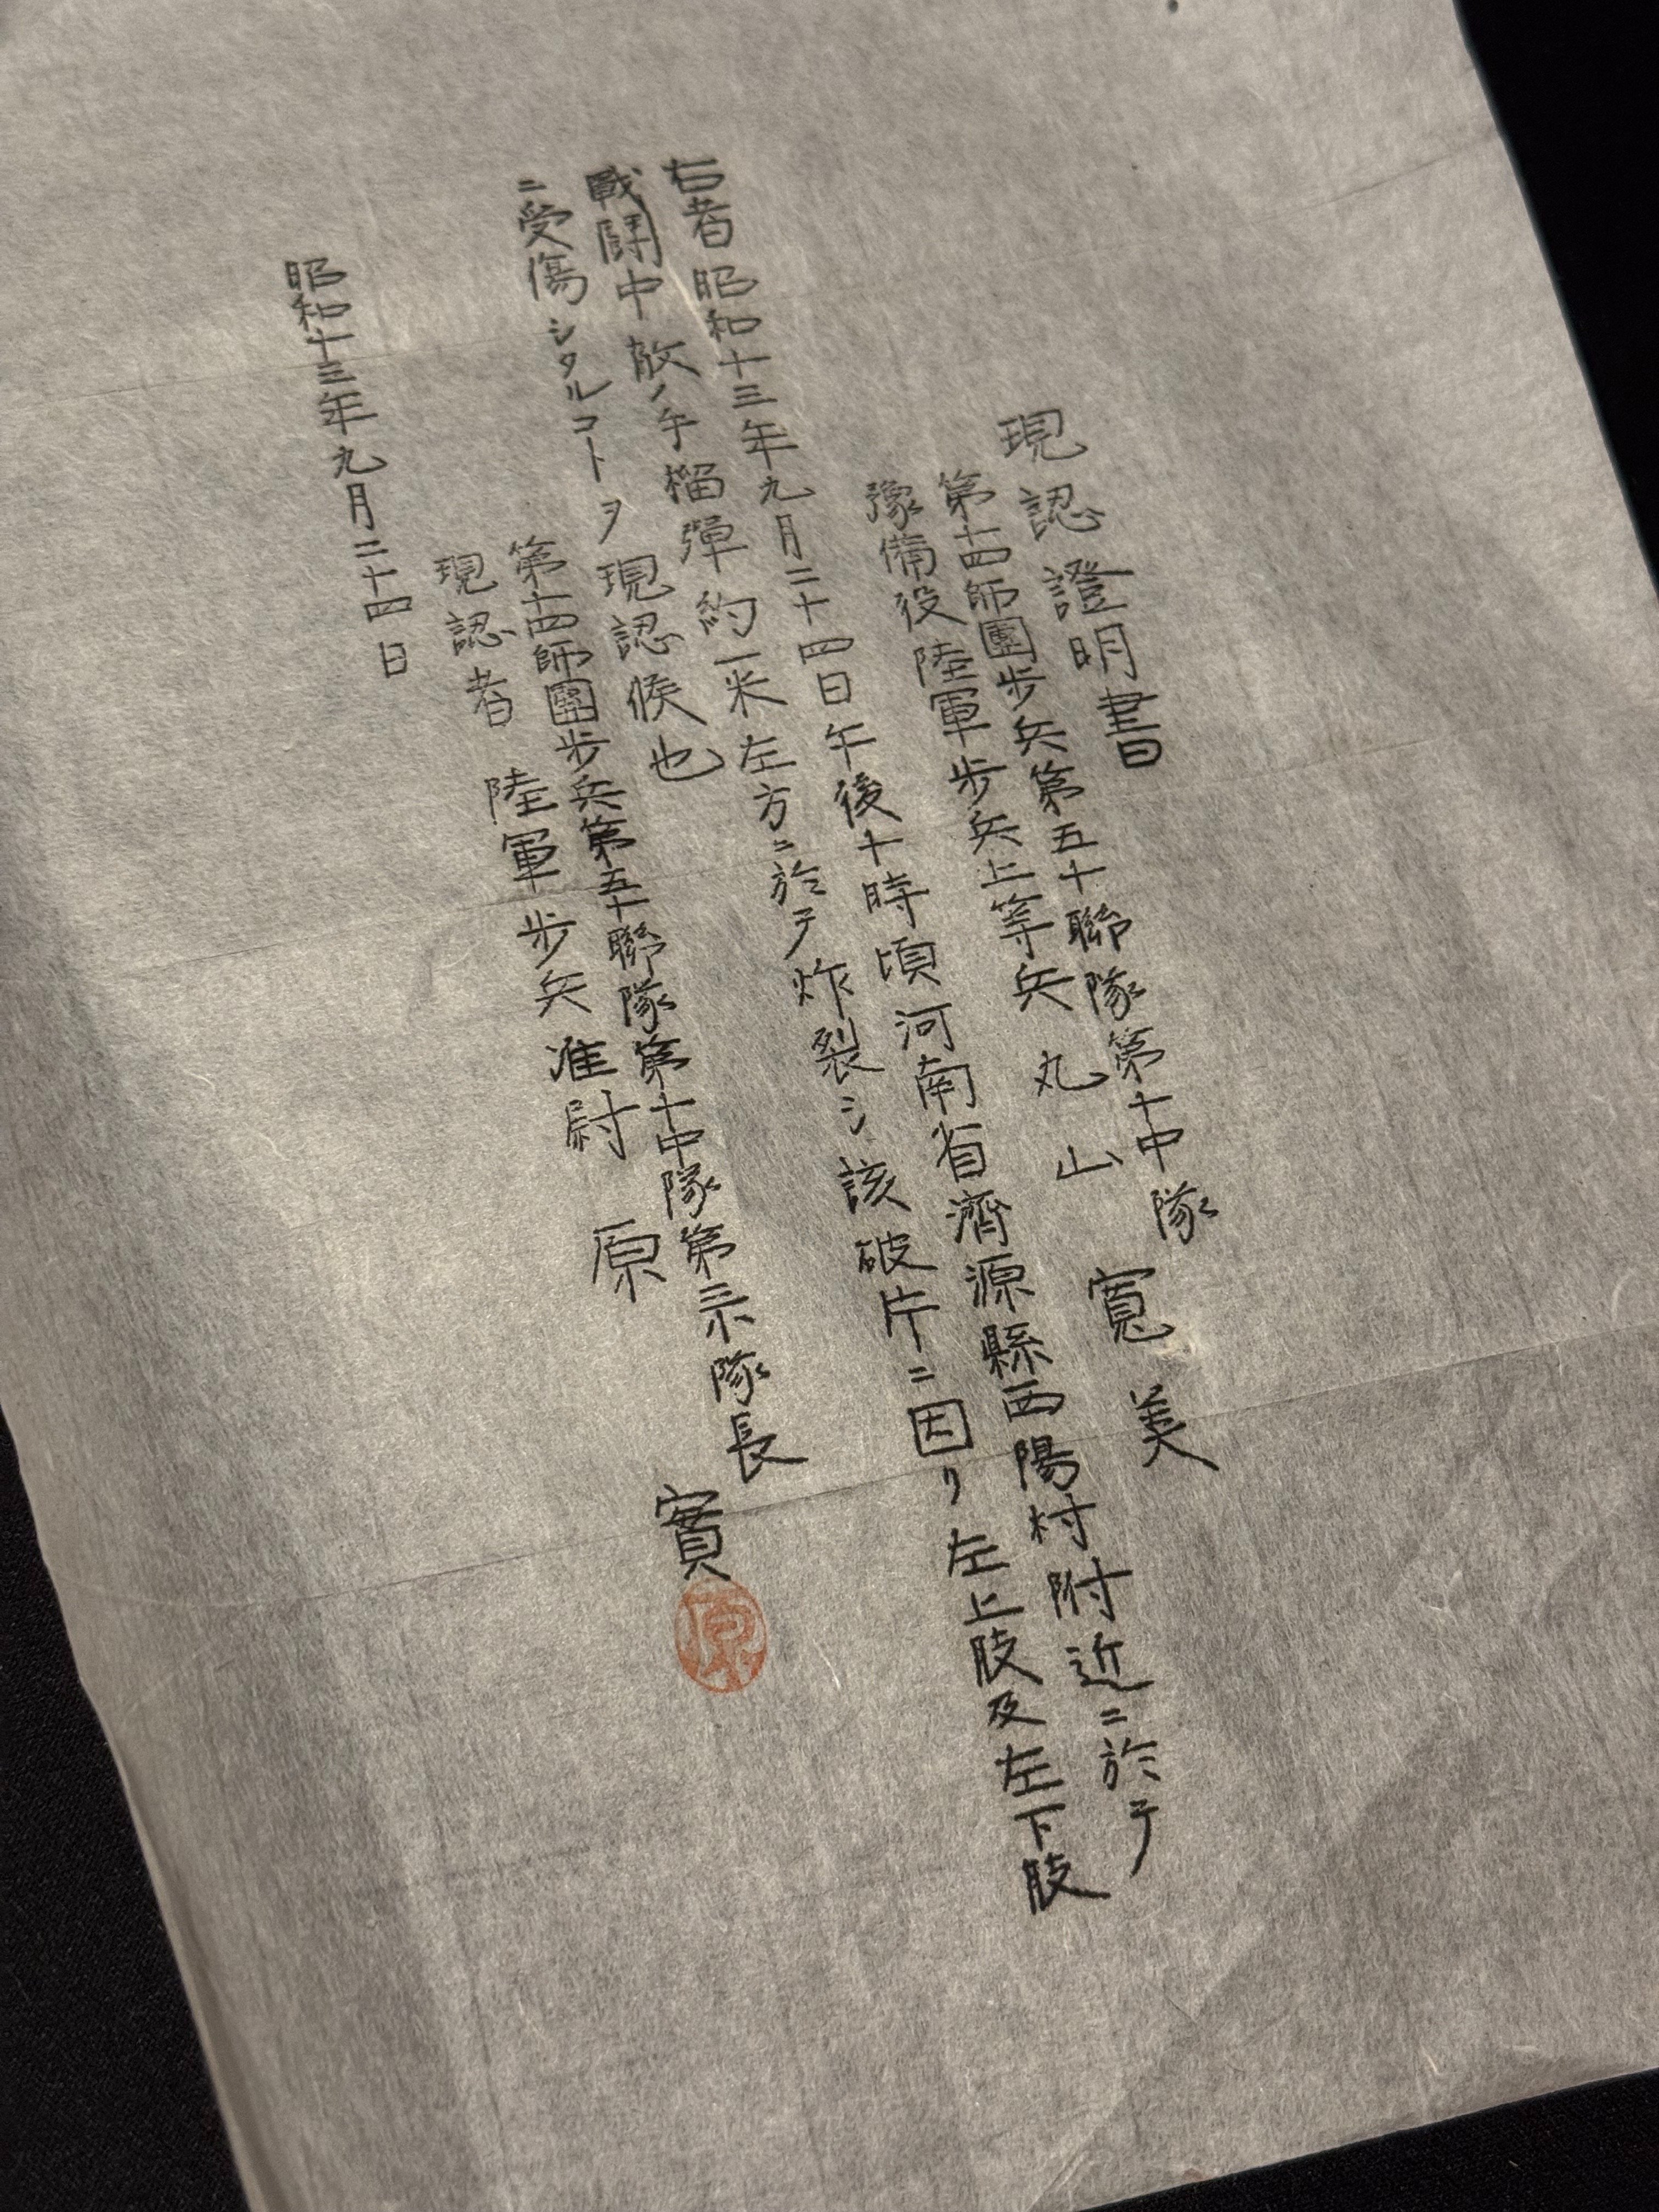 現認證明書
第十四師團步兵第五十聯隊第十中隊
豫備役陸軍步兵上等兵 丸山寬美
右者昭和十三年九月二十四日午後十時頃河南省濟源縣西陽村附近ニ於テ
戰鬪中敵ノ手榴彈約一米左方ニ於テ炸裂シ該破片ニ因リ左上肢及左下肢
ニ受傷シタルコトヲ現認候也
第十四師團步兵第五十聯隊第十中隊第三小隊長
現認者 陸軍步兵准尉 原實
原
昭和十三年九月二十四日